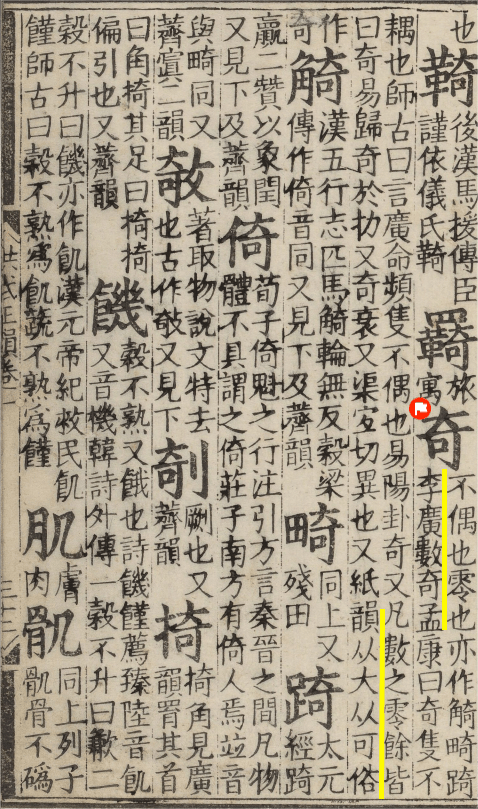 也
䩭
後漢馬援傳臣
謹依儀氏䩭
羈
旅
寓
奇
不偶也零也亦作觭畸踦
李廣數奇孟康曰奇隻不
耦也師古曰言廣命頻隻不偶也易陽卦奇又凡數之零餘皆
曰奇易歸奇於扐又奇衺又渠宜切異也又紙韻从大从可俗
作
奇
觭
漢五行志匹馬觭輪無反穀梁
傳作倚音同又見下及薺韻
畸
同上又
殘田
踦
太元
經踦
贏二贊以象閏
又見下及薺韻
倚
荀子倚魁之行注引方言秦晉之間凡物
體不具謂之倚莊子南方有倚人焉竝音
與畸同又
薺寘二韻
敧
著取物說文特去
也古作攲又見下
剞
劂也又
薺韻
掎
掎角見廣
韻詈其首
曰角掎其足曰掎掎
偏引也又薺韻
饑
穀不熟又餓也詩饑饉薦臻陸音飢
又音機韓詩外傳一穀不升曰歉二
穀不升曰饑亦作飢漢元帝紀赦民飢
饉師古曰穀不熟爲飢蔬不熟爲饉
肌
膚
肉
同上列子
骨不碼
正韻卷一
三十二